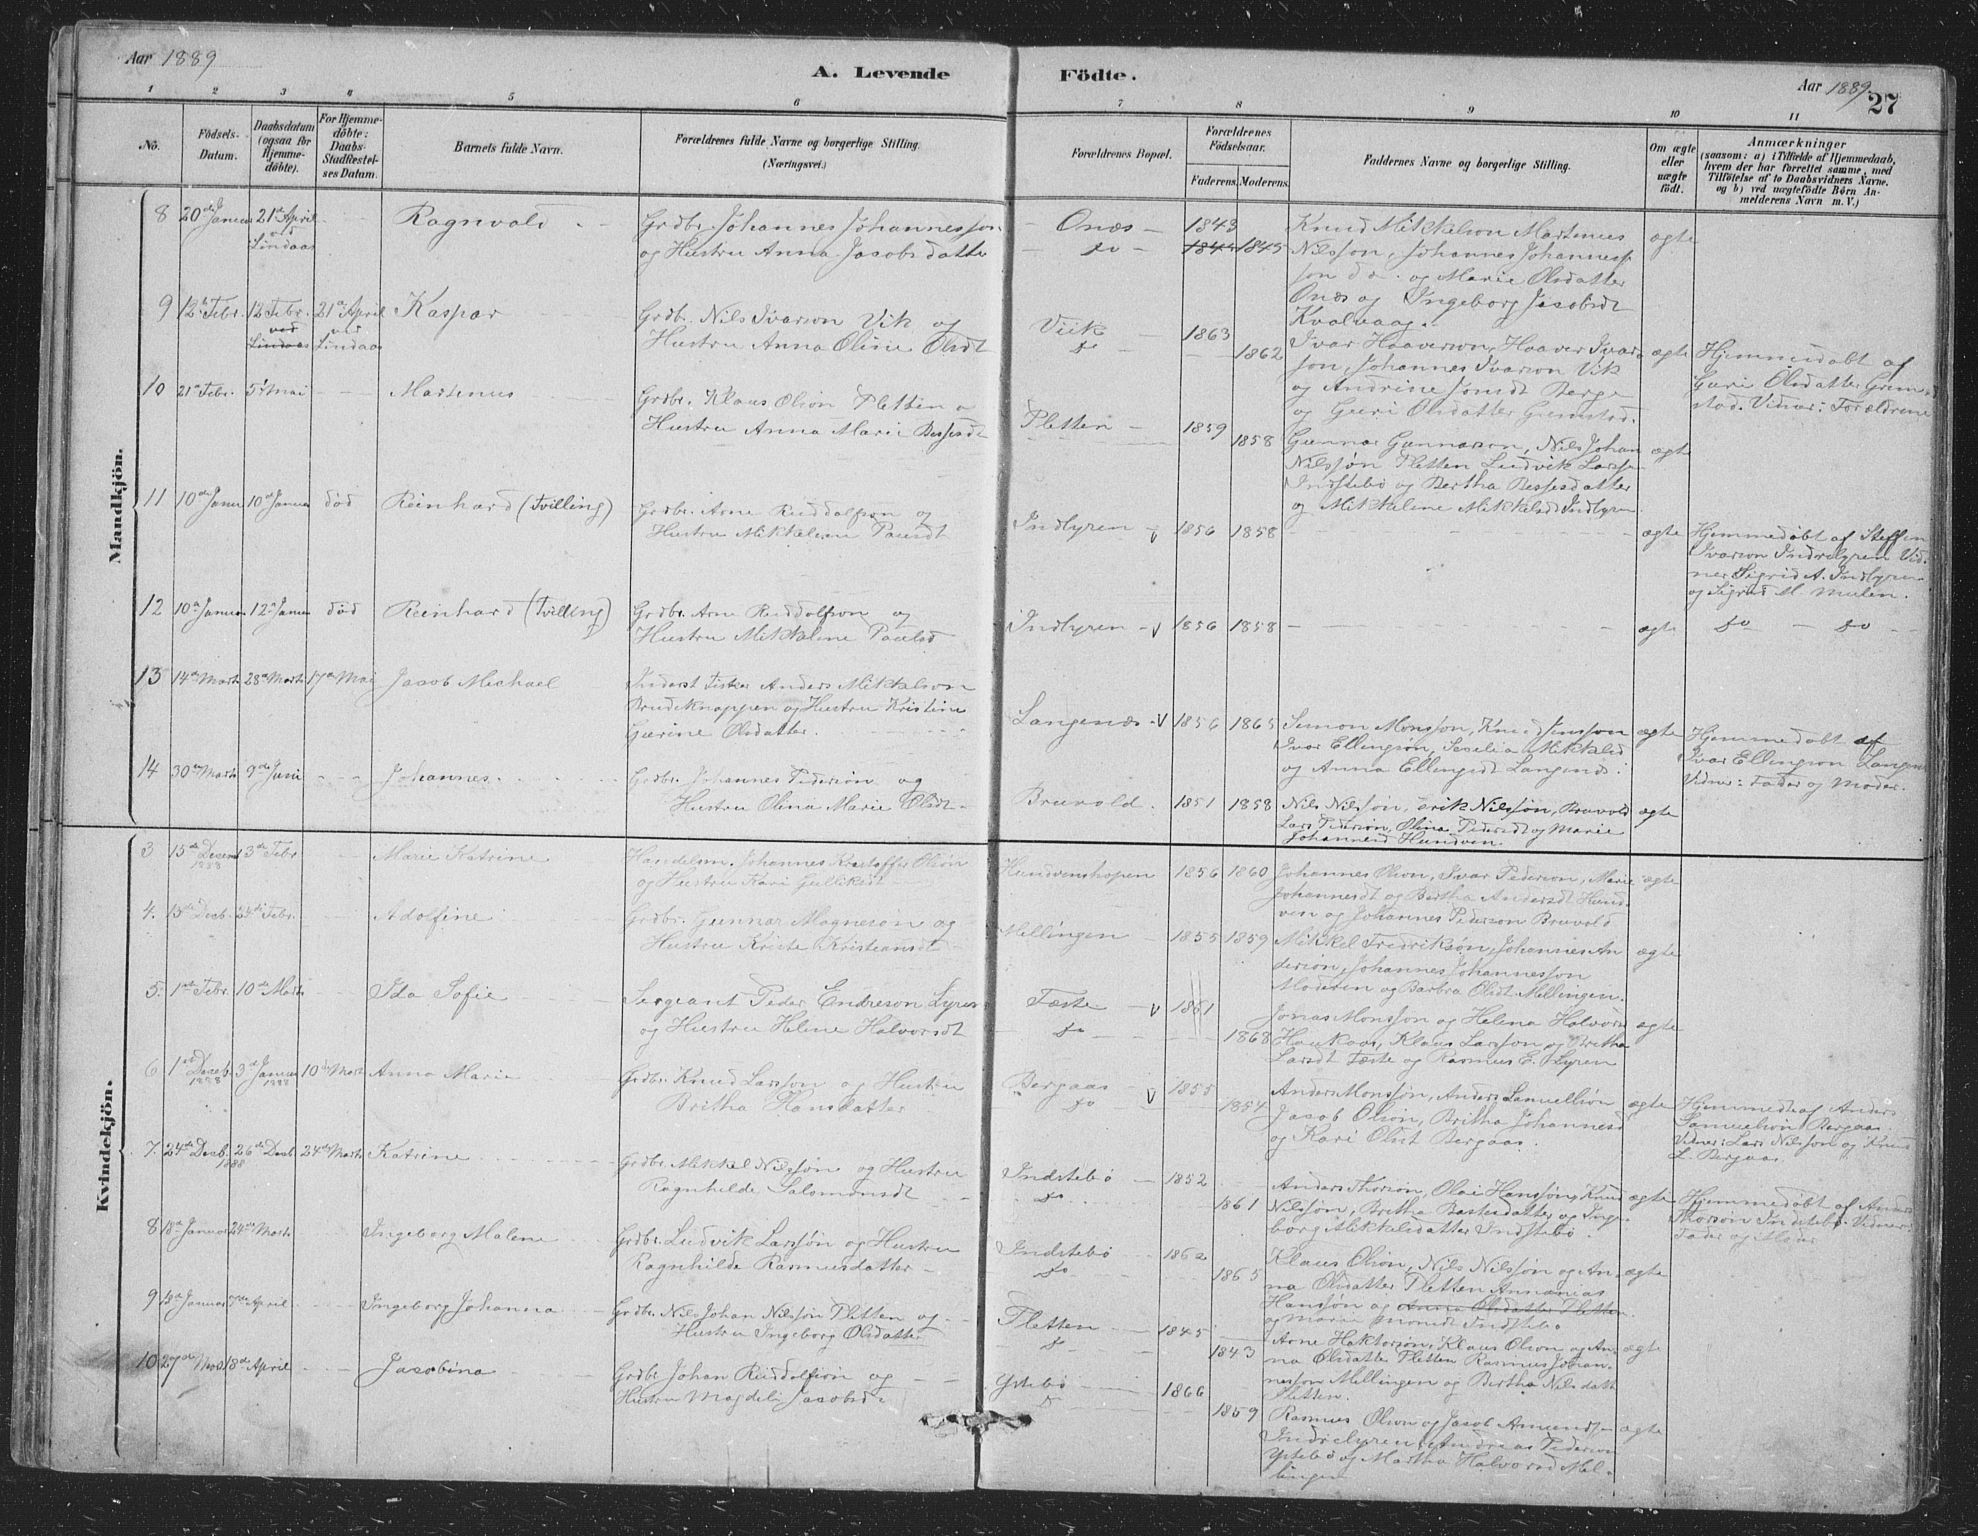 Aar 1889
A. Levende Födte.
Aar 1889.
27
1 2 3 4 5 6 7 8 9 10 11
No.
Födsels-Datum.
Daabsdatum (ogsaa för Hjemme-döbte).
For Hjemme-döbte: Daabs-Stadfæstel-ses Datum.
Barnets fulde Navn.
Forældrenes fulde Navne og borgerlige Stilling. (Næringsvei.)
Forældrenes Bopæl.
Forældrenes Födselsaar.
Faderens. Moderens.
Faddernes Navne og borgerlige Stilling.
Om ægte eller uægte födt.
Anmærkninger
(saasom: a) i Tilfælde af Hjemmedaab, hvem der har forrettet samme, med Tilföielse af to Daabsvidners Navne, og b) ved uægtefödte Börn An-melderens Navn m. V.)
Mandkjön.
8 20de Januar 21de April ved Lindaas
Ragnvald
Grdbr. Johannes Johannesson
og Hustru Anna Jacobsdatter
Onæs 1843
do 1845
Knud Mikkelson Martinus
Nilsson, Johannes Johannes-
son do. og Marie Olsdatter
Onæs og Ingeborg Jacobsdt
Kvalvaag.
ægte
9 12te Febr. 12 Febr. 21de April ved Lindaas
Kaspar
Grdbr. Nils Ivarson Vik og
Hustru Anna Oline Olsdt
Viik 1863
do 1862
Ivar Haaverson, Haaver Ivar-
son, Johannes Ivarson Vik
og Andrine Jonsdt Berge
og Guri Olsdatter Grimstad.
ægte
Hjemmedøbt af
Guri Olsdatter Grim-
stad. Vidner: Forældrene
10 21de Febr. 5te Mai
Martinus
Grdbr. Klaus Olson Fletten o
Hustru Anna Marie
Fletten 1859 1858
Gunnar Gunnarson, Nils Johan
Nilssøn Fletten Ludvik Larss.
Indstebø og Bertha
og Mikkeline Mikkelsd Indlyren
ægte
11 10de Januar 10de Januar død
Reinhard (Tvilling)
Grdbr. Arne Ruddolfson og
Hustru Mikkeline Paulsdt
Indlyren 1856 1858
ægte
Hjemmedøbt af Steffen
Ivarson Indrelyren Vid-
ner Sigrid A. Indlyren
og Sigrid M. Mulen.
12 10de Januar 12te Januar død
Reinhard (Tvilling)
Grdbr. Arne Ruddolfson og
Hustru Mikkeline Paulsd
Indlyren 1856 1858
ægte
do do
13 14de Marts 28de Marts 17de Mai
Jacob Michael
Inderst Fisker Anders Mikkelson
Brudeknappen og Hustru Kristine
Gurine Olsdatter.
Langenæs 1856 1865
Simon Monsson, Knud Simsson
Ivar Ellingsøn, Secelia Mikkelsd
og Anna Ellingsdt Langenæs.
ægte
Hjemmedøbt af
Ivar Ellingson Langenæs
Vidner: Fader og Moder.
14 30te Marts 9de Juni
Johannes
Grdbr. Johannes Pedersøn og
Hustru Olina Marie Olsdt
Bruvold. 1851 1858
Nils Nilssøn, Erik Nilssøn, Bruvold
Lars Pedersøn, Olina Pedersdt og Marie
Johannesd Hundven.
ægte
Kvindekjön.
3 15de Decemb 1888 3de Febr
Marie Katrine
Handelsm. Johannes Kristoffer Olsøn
og Hustru Kari Gulliksdt
Hundvenshopen 1856 1860
Johannes Olson, Ivar Pederson, Marie
Johannesdt og Bertha Andersdt Hund-
ven og Johannes Pederson Bruvold
ægte
4. 15de Decb. 24de Febr.
Adolfine
Grdbr. Gunnar Magneson og
Hustru Kriste Kristiansdt
Mellingen 1855 1859
Mikkel Fredriksøn, Johannes An-
dersøn, Johannes Johannesson
Moderen og Barbra Olsdt Mellingen.
ægte
5. 1ste Febr. 10de Marts
Ida Sofie
Sergeant Peder Endreson Lyren
og Hustru Helene Halvorsdt
Fæste 1861
do 1868
Jonas Monsson og Helena Halvorsd
Haukaas, Klaus Larsson og Britha
Larsdt Fæste og Rasmus E. Lyren
ægte
6 1ste Decb. 1888 3de Januar 1888 10de Marts
Anna Marie
Grdbr. Knud Larsson og Hustru
Britha Hansdatter
Bergaas 1855
do 1854
Anders Monssøn, Anders Samuelsøn
Jacob Olsøn, Britha Johannesd
og Kari Olsdt Bergaas.
ægte
Hjemmed. af Anders
Samuelson Bergaas
Vidner: Lars Nilsson og Knud
L. Bergaas
7. 24de Decb. 1888 26de Decb. 24de Marts
Katrine
Grdbr. Mikkel Nilssøn og Hustru
Ragnhilde Salomonsdt
Indstebø 1852
do 1861
Anders Thorsøn, Olai Hanssøn, Knud
Nilssøn, Britha Bastesdatter og Inge-
borg Mikkelsdatter Indstebø.
ægte
Hjemmedøbt af Anders
Thorsøn Indstebø. Vidner:
Fader og Moder
8 18de Januar 24de Marts
Ingeborg Malene
Grdbr. Ludvik Larssøn og Hustru
Ragnhilde Rasmusdatter
Indstebø 1862
do 1865
Klaus Olson, Nils Nilssøn og An-
na Olsdatter Fletten Annanias
Hanssøn og Anna Olsdatter Fletten
og Marie Monsdt Indstebø
ægte
9 13de Januar 7de April
Ingeborg Johanna
Grdbr. Nils Johan Nilssøn Fletten og
Hustru Ingeborg Olsdatter
Fletten 1845
do 1843
Arne Haktorsøn, Klaus Olson og An-
na Olsdatter Fletten Rasmus Johan-
nesson Mellingen og Bertha Nilsdatt
Fletten.
ægte
10 27de 18de April
Jacobina
Grdbr Johan Ruddolfsøn og
Hustru Magdeli Jacobsd.
Ystebø 1866
do 1859
Rasmus Olson og Jacob Amunds-
Indrelyren, Andreas Pederson
Ystebø og Martha Halvorsd Mel-
lingen
ægte